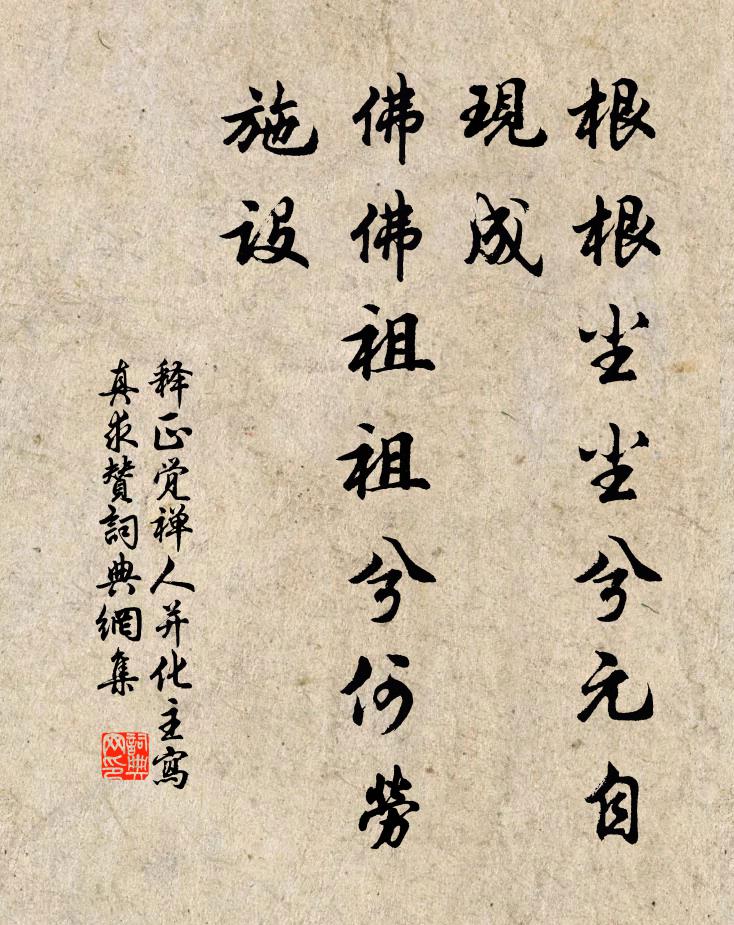 根根尘尘兮元自
現成
佛佛祖祖兮何勞
施設
释正觉禅人并化主寫
真求贊詞典網集
詞典
网印